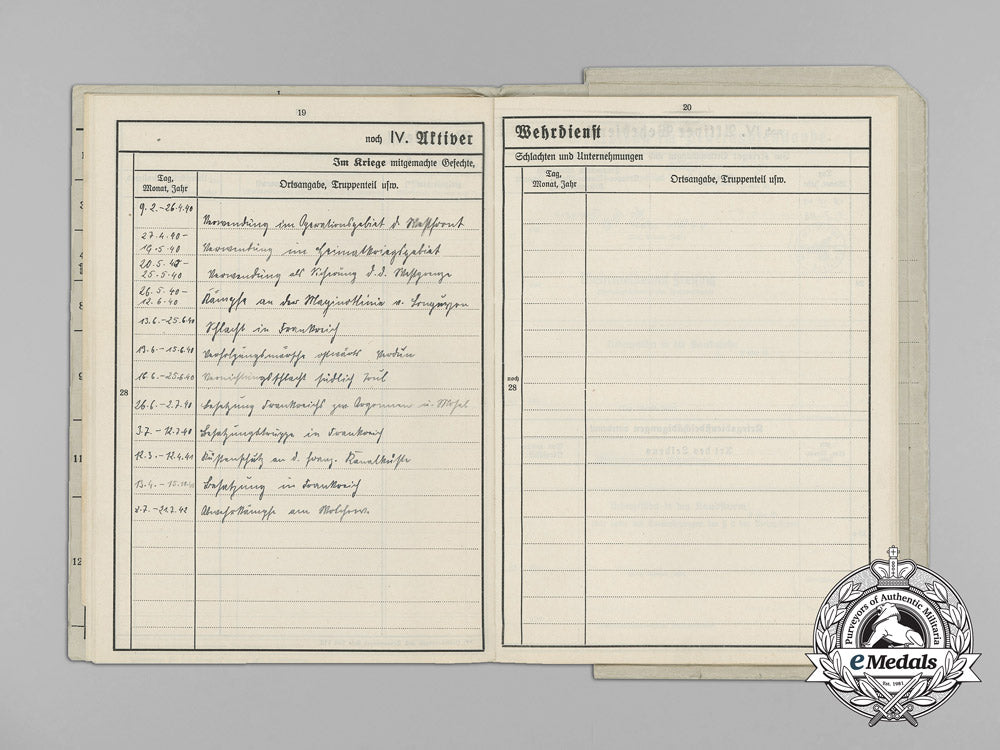 19
noch IV. Aktiver
Im Kriege mitgemachte Gefechte,
Tag,
Monat, Jahr
Ortsangabe, Truppenteil usw.
9.2.-26.4.40 Verwendung im Operationsgebiet d Westfront
27.4.40-
19.5.40 Verwendung im Heimatkriegsgebiet
20.5.40-
25.5.40 Verwendung als Sicherung d.d. Westgrenze
26.5.40-
12.6.40 Kämpfe an der Maginotlinie v. Longuyon
13.6.-25.6.40 Schlacht in Frankreich
13.6.-15.6.40 Verfolgungsmärsche ostwärts Verdun
16.6.-25.6.40 Vernichtungsschlacht südlich Toul
28
26.6.-2.7.40 Besetzung Frankreichs zw Argonnen u. Mosel
3.7.-12.7.40 Besatzungstruppe in Frankreich
12.3.-12.4.41 Küstenschutz an d. franz. Kanalküste
13.4.- Besatzung in Frankreich
-21.7.42 Abwehrkämpfe am Wolchow.
20
Wehrdienst
Schlachten und Unternehmungen
Tag,
Monat, Jahr
Ortsangabe, Truppenteil usw.
noch
28
11
12
Purveyors of Authentic Militaria
eMedals
Est. 1981